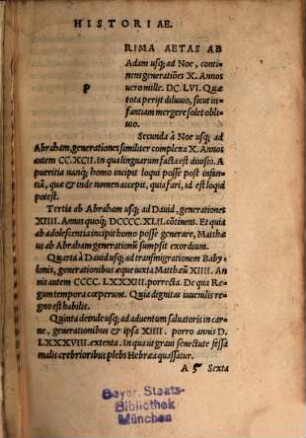 HISTORIAE.
P
RIMA AETAS AB
Adam usq; ad Noe, conti-
nens generatiões X. Annos
uero mille. DC LVI. Quæ
tota perijt diluuio, sicut in-
fantiam mergere solet obli-
uio.
Secunda à Noe usq; ad
Abraham, generationes similiter complexa X. Annos
autem CC.XCII. In qua linguarum facta est diuisio. A
pueritia nanq; homo incipit loqui posse post infan-
tiã, quæ & inde nomen accepit, quia fari, id est loqui nõ
potest.
Tertia ab Abraham usq; ad Dauid, generationes
XIIII. Annos quoq; DCCCC.XLII. cõtinens. Et quia
ab adolescentia incipit homo posse generare, Matthæus
ab Abraham generationũ sumpsit exordium.
Quarta à Dauid usq; ad transmigrationem Baby-
lonis, generationibus æque iuxta Matthæũ XIIII. An-
nis autem CCCC LXXXIII. porrecta. De qua Re-
gum tempora cœperunt. Quia dignitati iuuenilis re-
gno est habilis.
Quinta deinde usq; ad aduentum saluatoris in car-
ne, generationibus & ipsa XIIII. porro annis D.
LXXXVIII. extenta. In qua ut graui senectute fessa
malis crebrioribus plebs Hebræa quassatur.
A 5 Sexta
Bayer. Staats-
Bibliothek
München